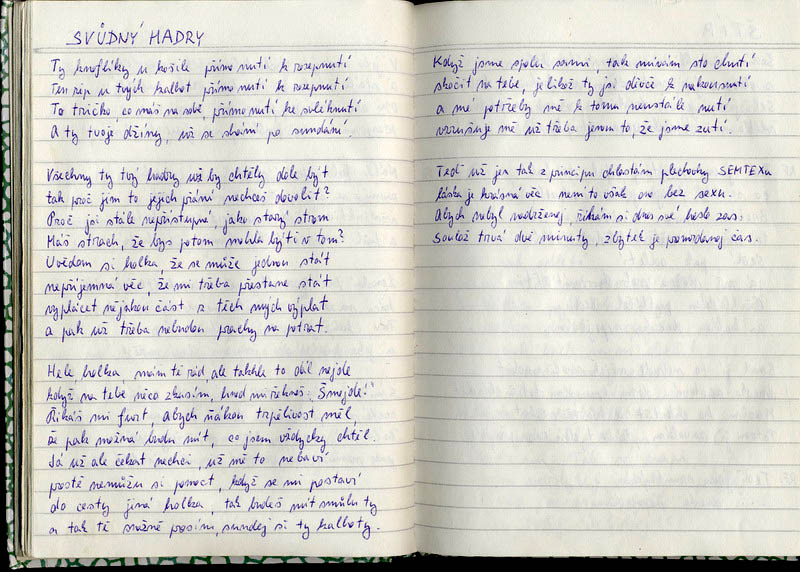 SVŮDNÝ HADRY
Ty knoflíky u košile přímo nutí k rozepnutí
Ten zip u tvých kalhot přímo nutí k rozepnutí
To tričko co máš na sobě, přímo nutí ke svléknutí
A ty tvoje džíny, už se shání po sundání.
Všechny ty tvý hadry už by chtěly dole být
tak proč jim to jejich přání nechceš dovolit?
Proč jsi stále nepřístupná, jako starý strom
Máš strach, že bys potom mohla býti v tom?
Uvědom si holka, že se může jednou stát
nepříjemná věc, že mi třeba přestane stát
vyplácet nějakou část z těch mých výplat
a pak už třeba nebudou prachy na potrat.
Hele, holka, mám tě rád, ale takhle to dál nejde
když na tebe něco zkusím, hned mi řekneš: "Šmejde!"
Říkáš mi furt, abych ňákou trpělivost měl,
že pak možná budu mít, co jsem vždycky chtěl.
Já už ale čekat nechci, už mě to nebaví
prostě nemůžu si pomoct, když se mi postaví
do cesty jiná holka, tak budeš mít smůlu ty
a tak tě snažně prosím, sundej si ty kalhoty.
Když jsme spolu sami, tak mívám sto chutí
skočit na tebe, jelikož ty jsi děvče k nakousnutí
a mé potřeby mě k tomu neustále nutí
vzrušuje mě už třeba jenom to, že jsme zutí.
Teď už jen tak z principu chlastám plechovky SEMTEXu
láska je krásná věc, není to však ono bez sexu.
Abych nebyl nadržený, říkám si dnes své heslo zas:
Soulož trvá dvě minuty, zbytek je promrdanej čas.